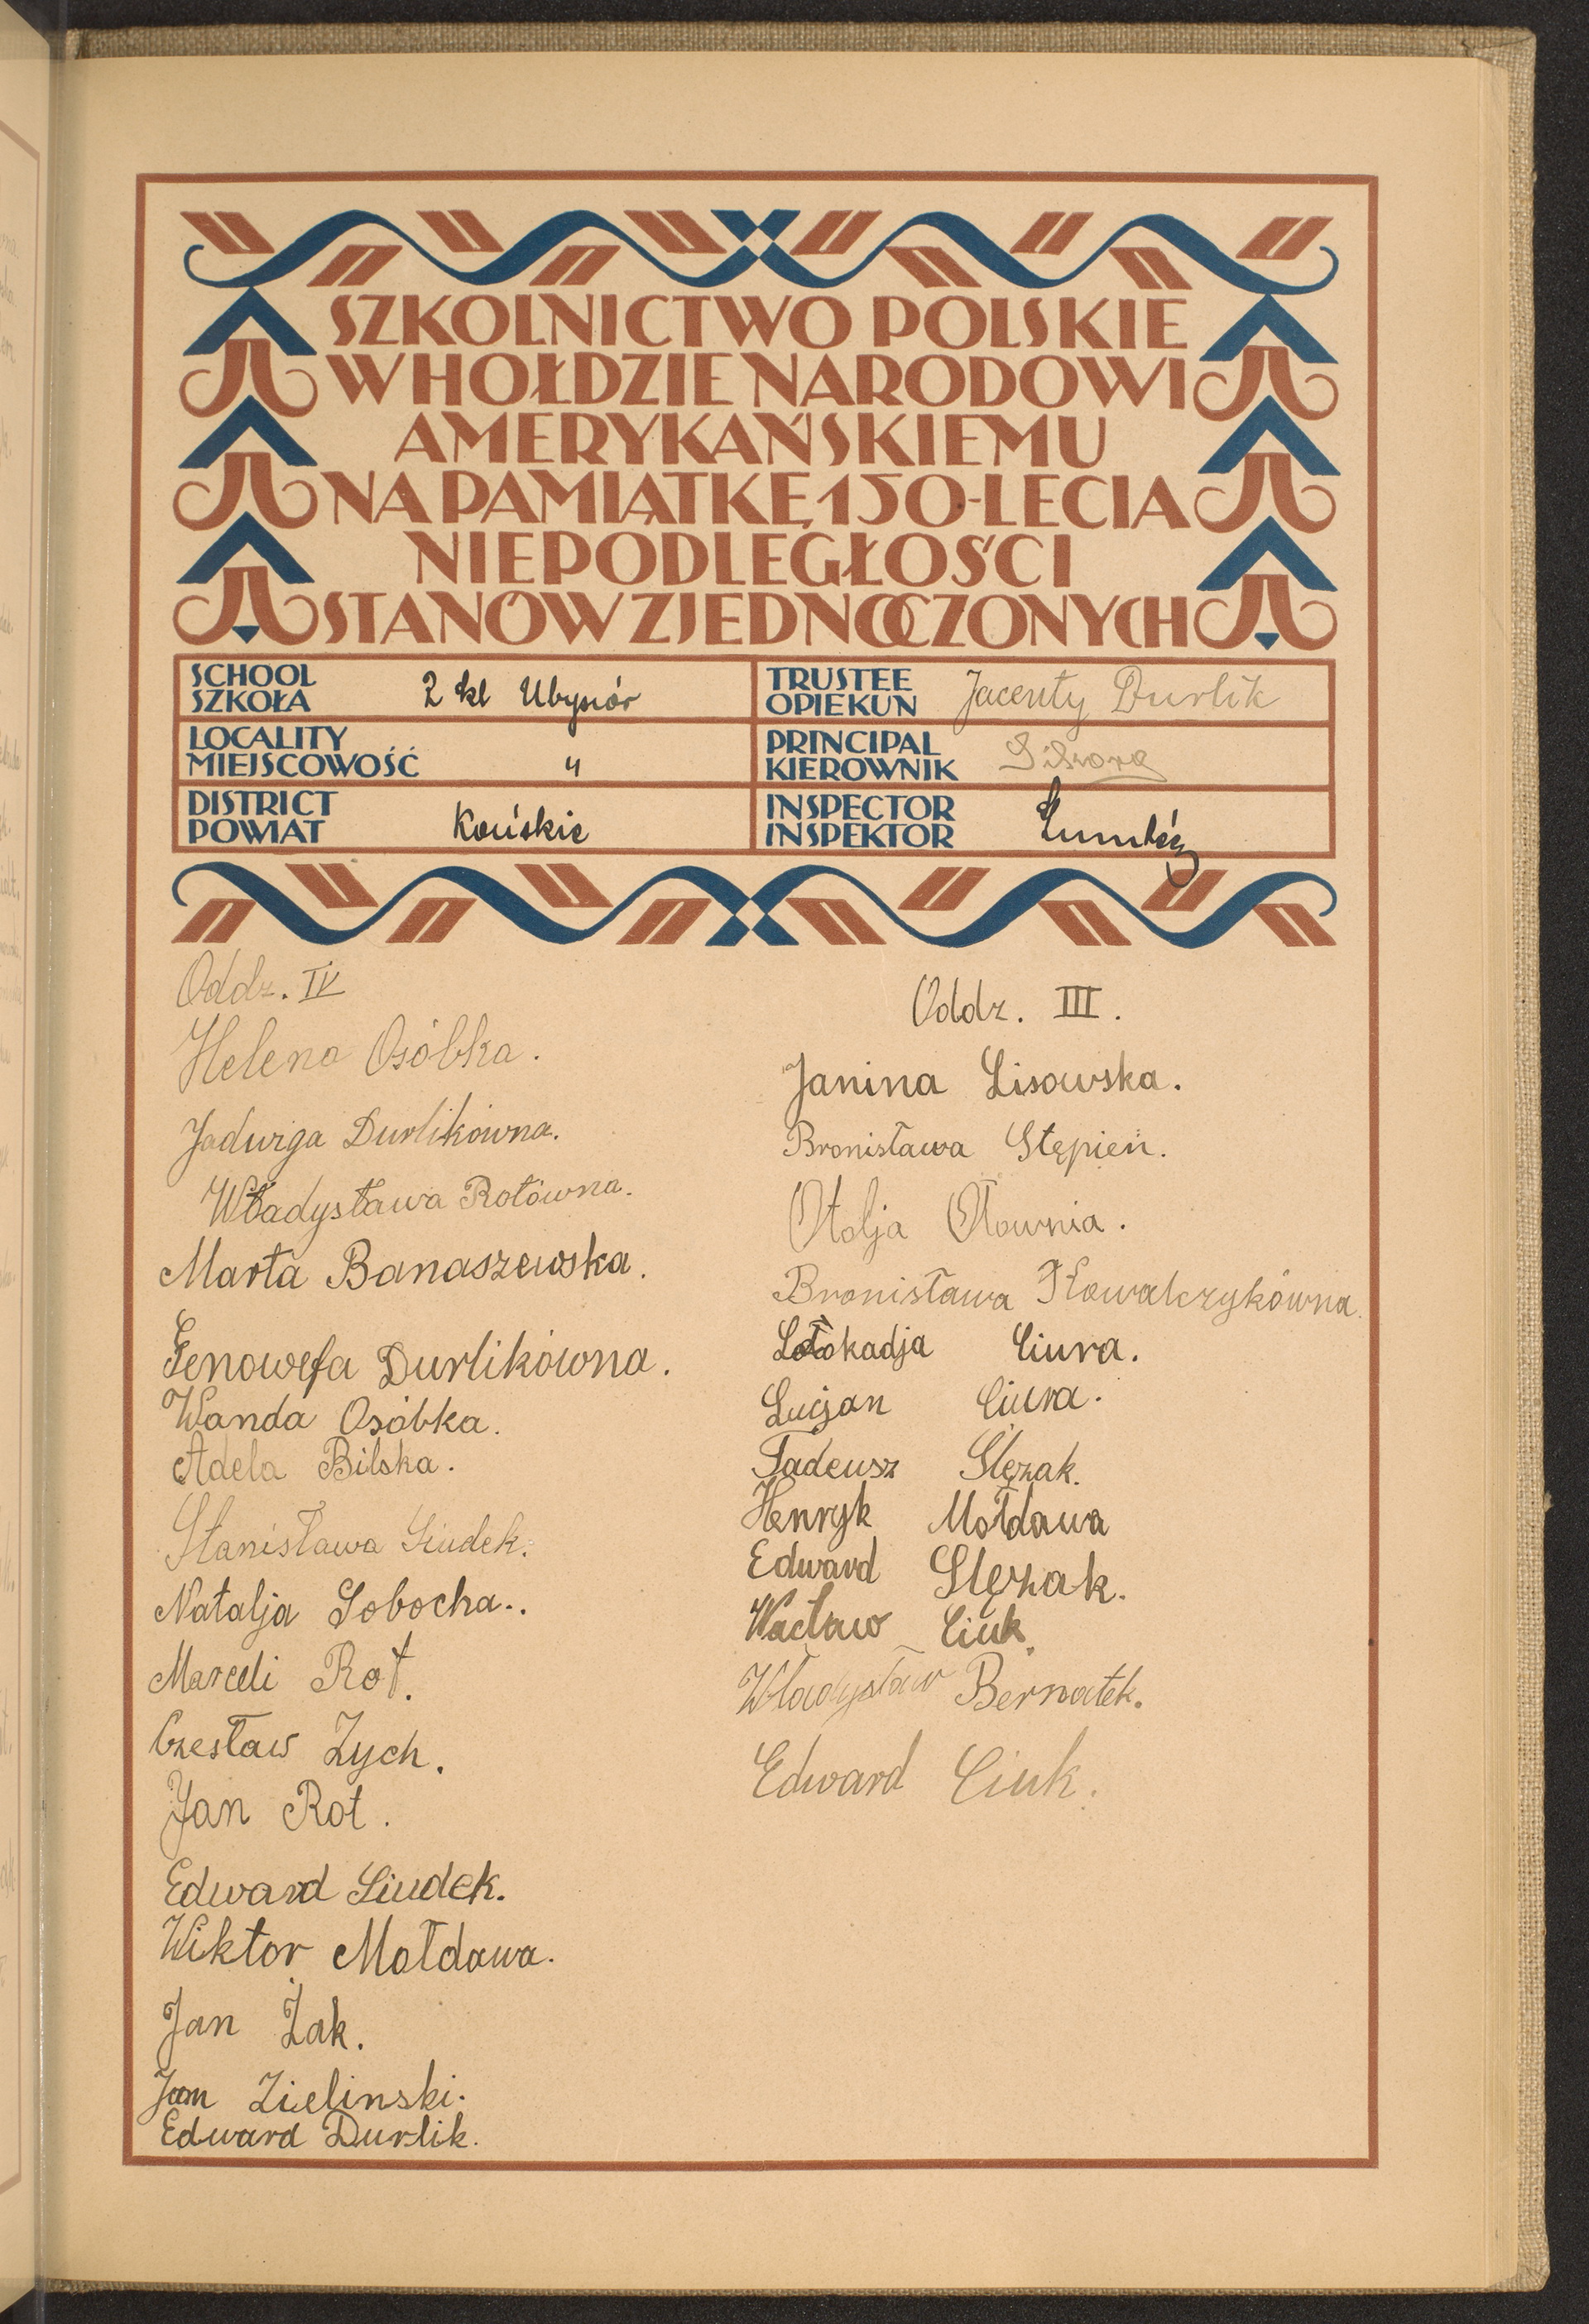 SZKOLNICTWO POLSKIE
W HOŁDZIE NARODOWI
AMERYKAŃSKIEMU
NA PAMIĄTKĘ 150-LECIA
NIEPODLEGŁOŚCI
STANÓW ZJEDNOCZONYCH
SCHOOL
SZKOŁA
2 kl Ubysiór
TRUSTEE
OPIEKUN
Jacenty Durlik
LOCALITY
MIEJSCOWOŚĆ
"
PRINCIPAL
KIEROWNIK
Sikora
DISTRICT
POWIAT
Końskie
INSPECTOR
INSPEKTOR
Oddz. IV
Helena Osóbka.
Jadwiga Durlikówna.
Władysława Rotówna.
Marta Banaszewska.
Genowefa Durlikówna.
Wanda Osóbka.
Adela Bilska.
Stanisława Siudek.
Natalja Sobocha..
Marceli Rot.
Czesław Zych.
Jan Rot.
Edward Siudek.
Wiktor Mołdawa.
Jan Żak.
Jan Zielinski.
Edward Durlik.
Oddz. III.
Janina Lisowska.
Bronisława Stępień.
Otolja Ołownia.
Bronisława Kowalczykówna.
Ciura.
Lucjan Ciura.
Tadeusz Ślęzak.
Henryk Mołdawa
Edward Slęzak.
Wacław Ciuk.
Władysław Bernatek.
Edward Ciuk.